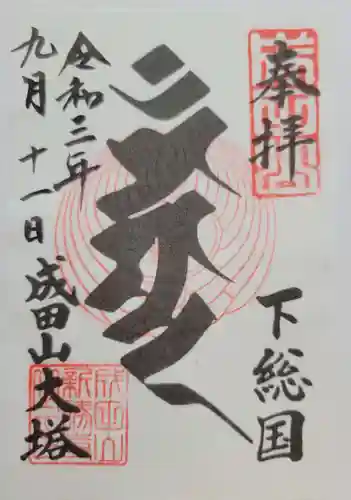 奉拝
下総国
令和三年
九月十一日
成田山大塔